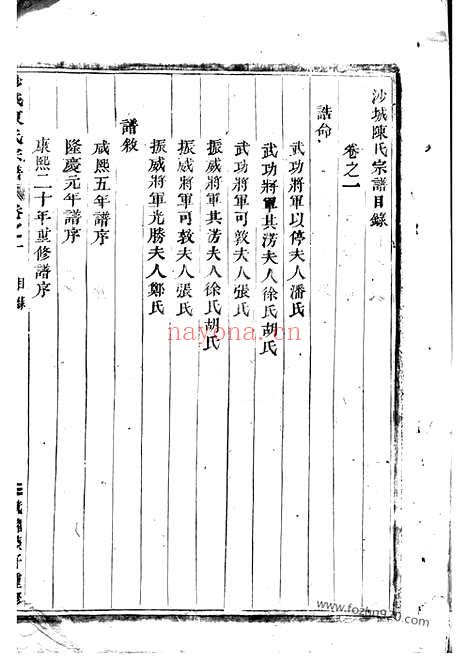 沙城陳氏宗譜目錄
卷之一
誥命
武功將軍以停夫人潘氏
武功將軍其涝夫人徐氏胡氏
武功將軍可敦夫人張氏
振威將軍其涝夫人徐氏胡氏
振威將軍可敦夫人張氏
振威將軍光勝夫人鄭氏
譜敘
咸熙五年譜序
隆慶元年譜序
康熙二十年重修譜序
沙城陳氏宗譜 卷之一 目錄
nayona.cn
www.fozong920.com